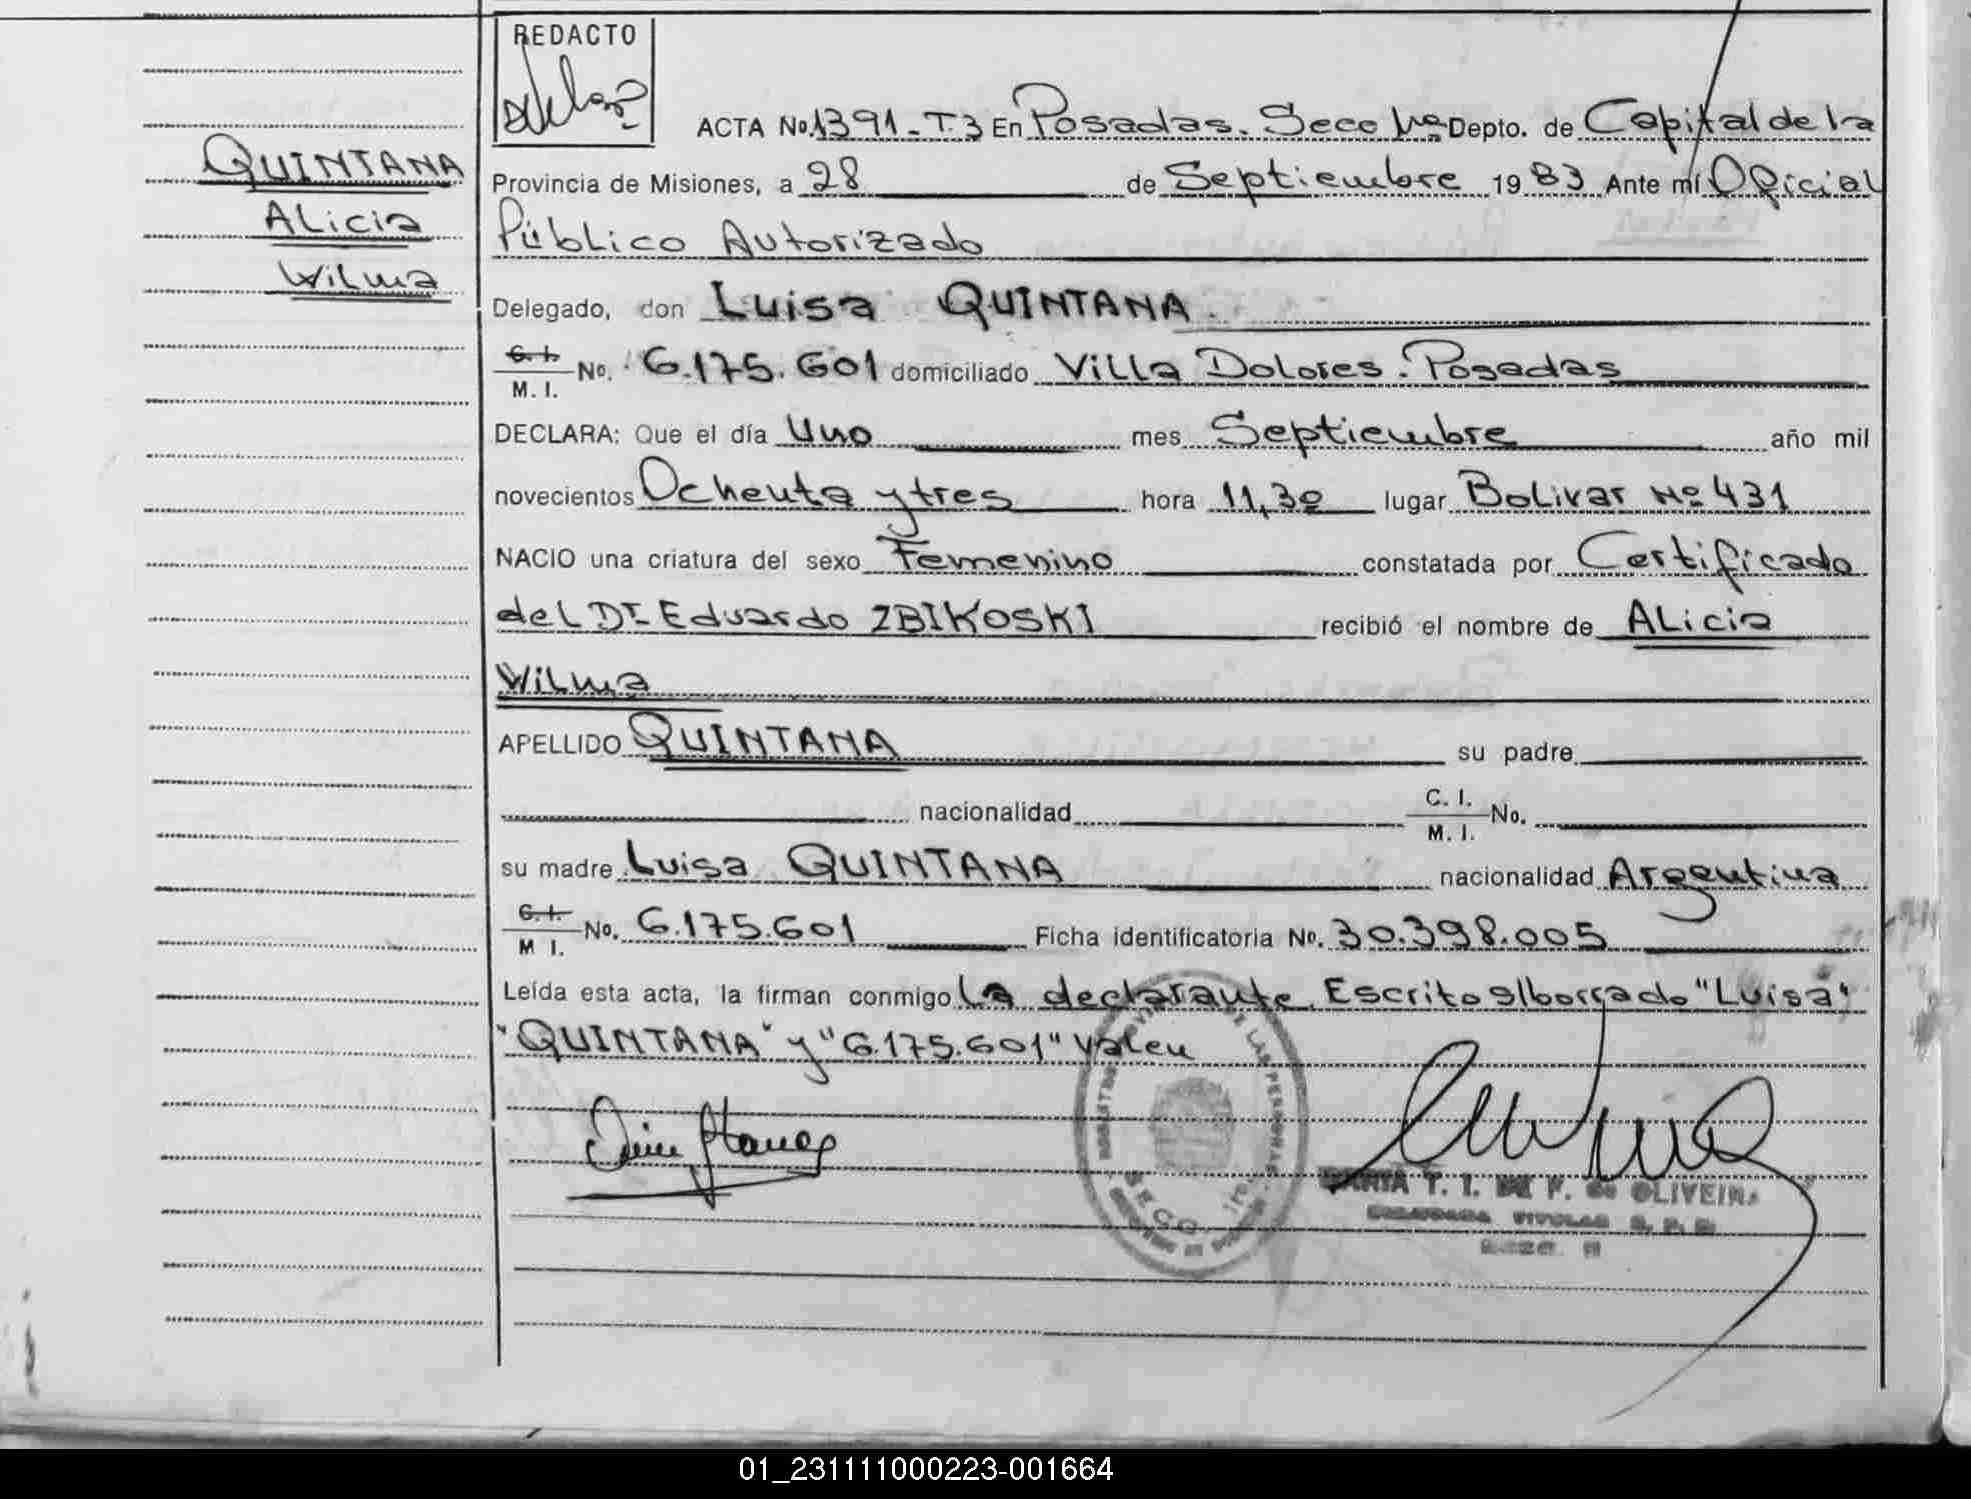 REDACTO
ACTA No. 1391-T.3 En Posadas. Secc 1ra Depto. de Capital de la
QUINTANA
Alicia
Wilma
Provincia de Misiones, a 28 de Septiembre 1983 Ante mí Oficial
Público Autorizado
Delegado, don Luisa QUINTANA
C. I. M. I. No. 6.175.601 domiciliado Villa Dolores. Posadas
DECLARA: Que el día Uno mes Septiembre año mil
novecientos Ochenta y tres hora 11,30 lugar Bolivar Nº 431
NACIO una criatura del sexo Femenino constatada por Certificado
del Dr Eduardo ZBIKOSKI recibió el nombre de Alicia
Wilma
APELLIDO QUINTANA su padre
nacionalidad C. I. M. I. No.
su madre Luisa QUINTANA nacionalidad Argentina
C. I. M I. No. 6.175.601 Ficha identificatoria No. 30.398.005
Leída esta acta, la firman conmigo La declarante. Escrito s/borrado "Luisa"
"QUINTANA" y "6.175.601" Valen
T. I. DE F. de OLIVEIRA
TITULAR
01_231111000223-001664